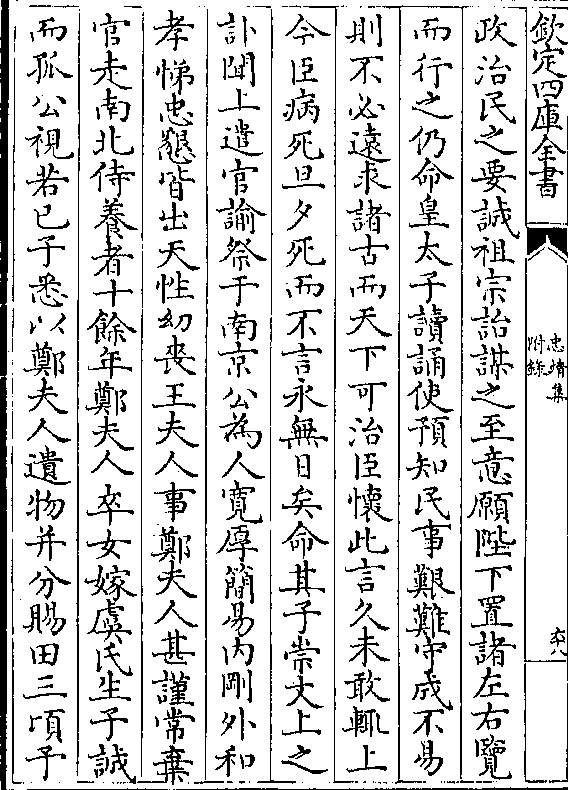 欽定四庫全書
忠靖集
附錄
六八
政治民之要誠祖宗詒謀之至意願陛下置諸左右覽
而行之仍命皇太子讀誦使預知民事艱難守成不易
則不必遠求諸古而天下可治臣懷此言久未敢輒上
今臣病死旦夕死而不言永無日矣命其子崇文上之
訃聞上遣官諭祭于南京公為人寛厚簡易内剛外和
孝悌忠懇皆出天性幼喪王夫人事鄭夫人甚謹常棄
官走南北侍養者十餘年鄭夫人卒女嫁虞氏生子誠
而孤公視若已子悉以鄭夫人遺物并分賜田三頃予